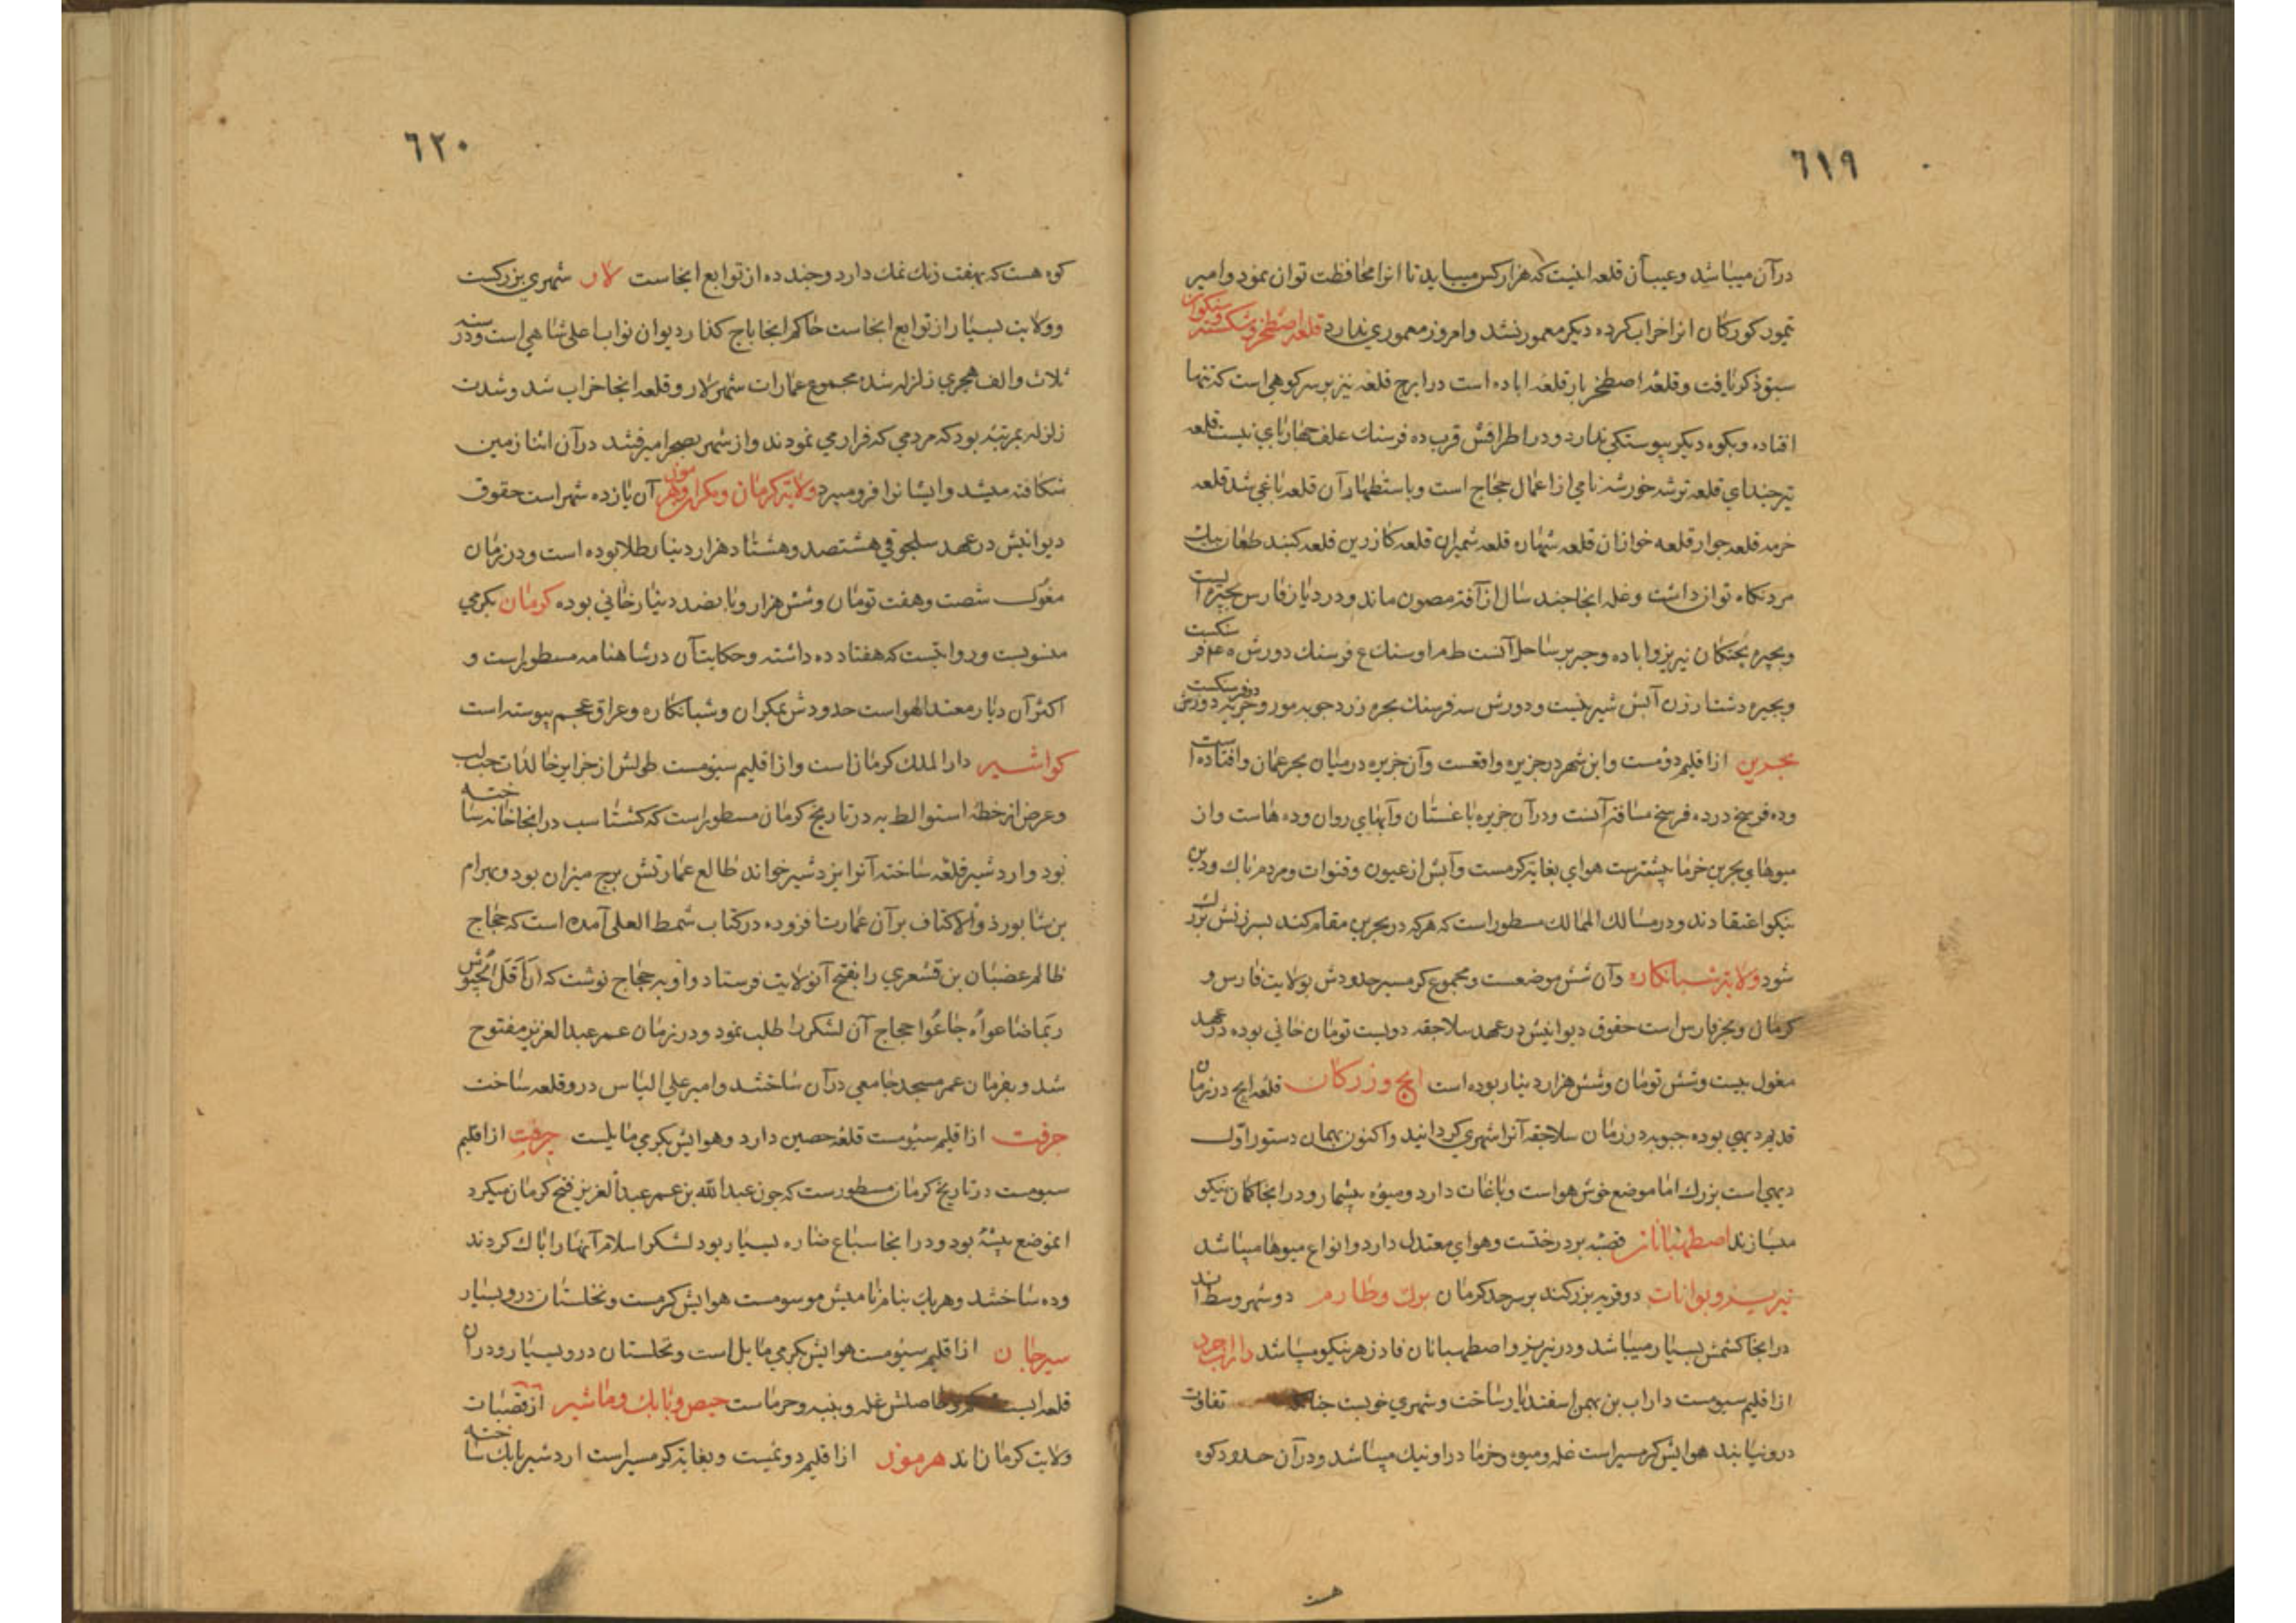 ٦١٩
درآن میباشد وعیب آن قلعه اینست که هزار کس میباید تا انرا محافظت توان نمود وامیر
تیمور کورکان انرا خراب کرده دیکر معمور نشد وامروز معموری ندارد قلعه اصطخر وشکسته
سبق ذکر یافت وقلعه اصطخر یار قلعه اباده است در ایرج قلعه نیز بر سر کوهی است که تنها
افتاده وبکوه دیکر پیوستکی ندارد ودر اطرافش قرب ده فرسنك علف چهارپای نیست قلعه
تیر خدای قلعه ترشه خورشه نامی از اعمال حجاج است وباستظهار آن قلعه یاغی شد قلعه
خرمه قلعه جوار قلعه خوازان قلعه شهاره قلعه شمیران قلعه کازرین قلعه کنبد
مرد نکاه توان داشت وغله انجا چند سال از آفة مصون ماند ودر دیار فارس بحیره است
وبحیره بختکان نیریز واباده وخیر بر ساحل آنست فرسنك دورش
وبحیره دشت ارزن آبش شیرینست ودورش سه فرسنك
بحرین از اقلیم دومست واین شهر در جزیره واقعست وآن جزیره در میان بحر عمان وافتاده است
وده فرسخ در ده فرسخ مسافة آنست ودرآن جزیره باغستان وآبهای روان وده هاست واز
میوهای بحرین خرما بیشترست هوای بغایة کرمست وآبش از عیون وقنوات ومردم پاك ودین
نیکو اعتقادند ودر مسالك الممالك مسطور است که هرکه در بحرین مقام کند سپرزش بزرك
شود ولایة شبانکاره وآن شش موضعست ومجموع کرمسیر حدودش بولایت فارس و
کرمان وبحر فارس است حقوق دیوانیش در عهد سلاجقه دویست تومان خانی بوده در عهد
مغول بیست وشش تومان وشش هزار دینار بوده است ایج وزرکان قلعه ایج در زمان
قدیم دیهی بوده در زمان سلاجقه آنرا شهری کردانید واکنون بهمان دستور اول
دیهی است بزرك اما موضع خوش هواست وباغات دارد ومیوه بیشمار ودر انجا کمان نیکو
میسازند اصطهباناز قصبه پر درختست وهوای معتدل دارد وانواع میوها میباشد
نیریز وبوانات دو قریه بزرکند بر سرحد کرمان برك وطارم دو شهر وسط اند
در انجا کشمش بسیار میباشد ودر نیریز واصطهبانان فادزهر نیکو میباشد دارابجرد
از اقلیم سیومست داراب بن بهمن اسفندیار ساخت وشهری خوبست تفاوت
درو نیابند هوایش کرمسیر است غله ومیوه وخرما در او نیك میباشد ودرآن حدود کوه
هست
٦٢٠
کوه هست که بهفت رنك نمك دارد وچند ده از توابع انجاست لار شهری بزرکست
وولایت بسیار از توابع انجاست حاکم انجا باج کذار دیوان نواب اعلی شاهی است ودر سنه
ثلاث والف هجری زلزله شده مجموع عمارات شهر لار وقلعه انجا خراب شد وشدت
زلزله بمرتبه بود که مردمی که فرار می نمودند واز شهر بصحرا میرفتند درآن اثنا زمین
شکافته میشد وایشانرا فرو میبرد ولایة کرمان ومکران وهرموز آن یازده شهر است حقوق
دیوانیش در عهد سلجوقی هشتصد وهشتاد هزار دینار طلا بوده است ودر زمان
مغول شصت وهفت تومان وشش هزار وپانصد دینار خانی بوده کرمان بکرمی
منسوبست وروایتست که هفتاد ده داشته وحکایت آن در شاهنامه مسطور است و
اکثر آن دیار معتدل هواست حدودش بمکران وشبانکاره وعراق عجم پیوسته است
کواشیر دار الملك کرمان است واز اقلیم سیومست طولش از جزایر خالدات
وعرض از خط استوا در تاریخ کرمان مسطور است که کشتاسب در انجا اتشخانه ساخته
بود واردشیر قلعه ساخته آنرا بردشیر خواند طالع عمارتش برج میزان بود وبهرام
بن شابور ذو الاکتاف برآن عمارت افزوده در کتاب سمط العلی آمده است که حجاج
ظالم غضبان بن قشعری را بفتح آن ولایت فرستاد واو بر حجاج نوشت که ان اقل الجیوش
بها ضاعوا وجاعوا حجاج آن لشکر را طلب نمود ودر زمان عمر عبد العزیز مفتوح
شد وبفرمان عمر مسجد جامعی درآن ساختند وامیر علی الیاس درو قلعه ساخت
جرفت از اقلیم سیومست قلعه حصین دارد وهوایش بکرمی مایلست جرفت از اقلیم
سیومست در تاریخ کرمان مسطورست که چون عبد الله بن عمر عبد العزیز فتح کرمان میکرد
انموضع بیشه بود ودر انجا سباع ضاره بسیار بود لشکر اسلام آنها را پاك کردند
وده ساختند وهریك بنام بانیش موسومست هوایش کرمست ونخلستان درو بسیار
سیرجان از اقلیم سیومست هوایش بکرمی مایل است ونخلستان درو بسیار ودر آن
قلعه ایست حاصلش غله وپنبه وخرماست حیص وبابك وماشیر از قصبات
ولایت کرمان اند هرموز از اقلیم دویمست وبغایة کرمسیر است اردشیر بابك ساخته